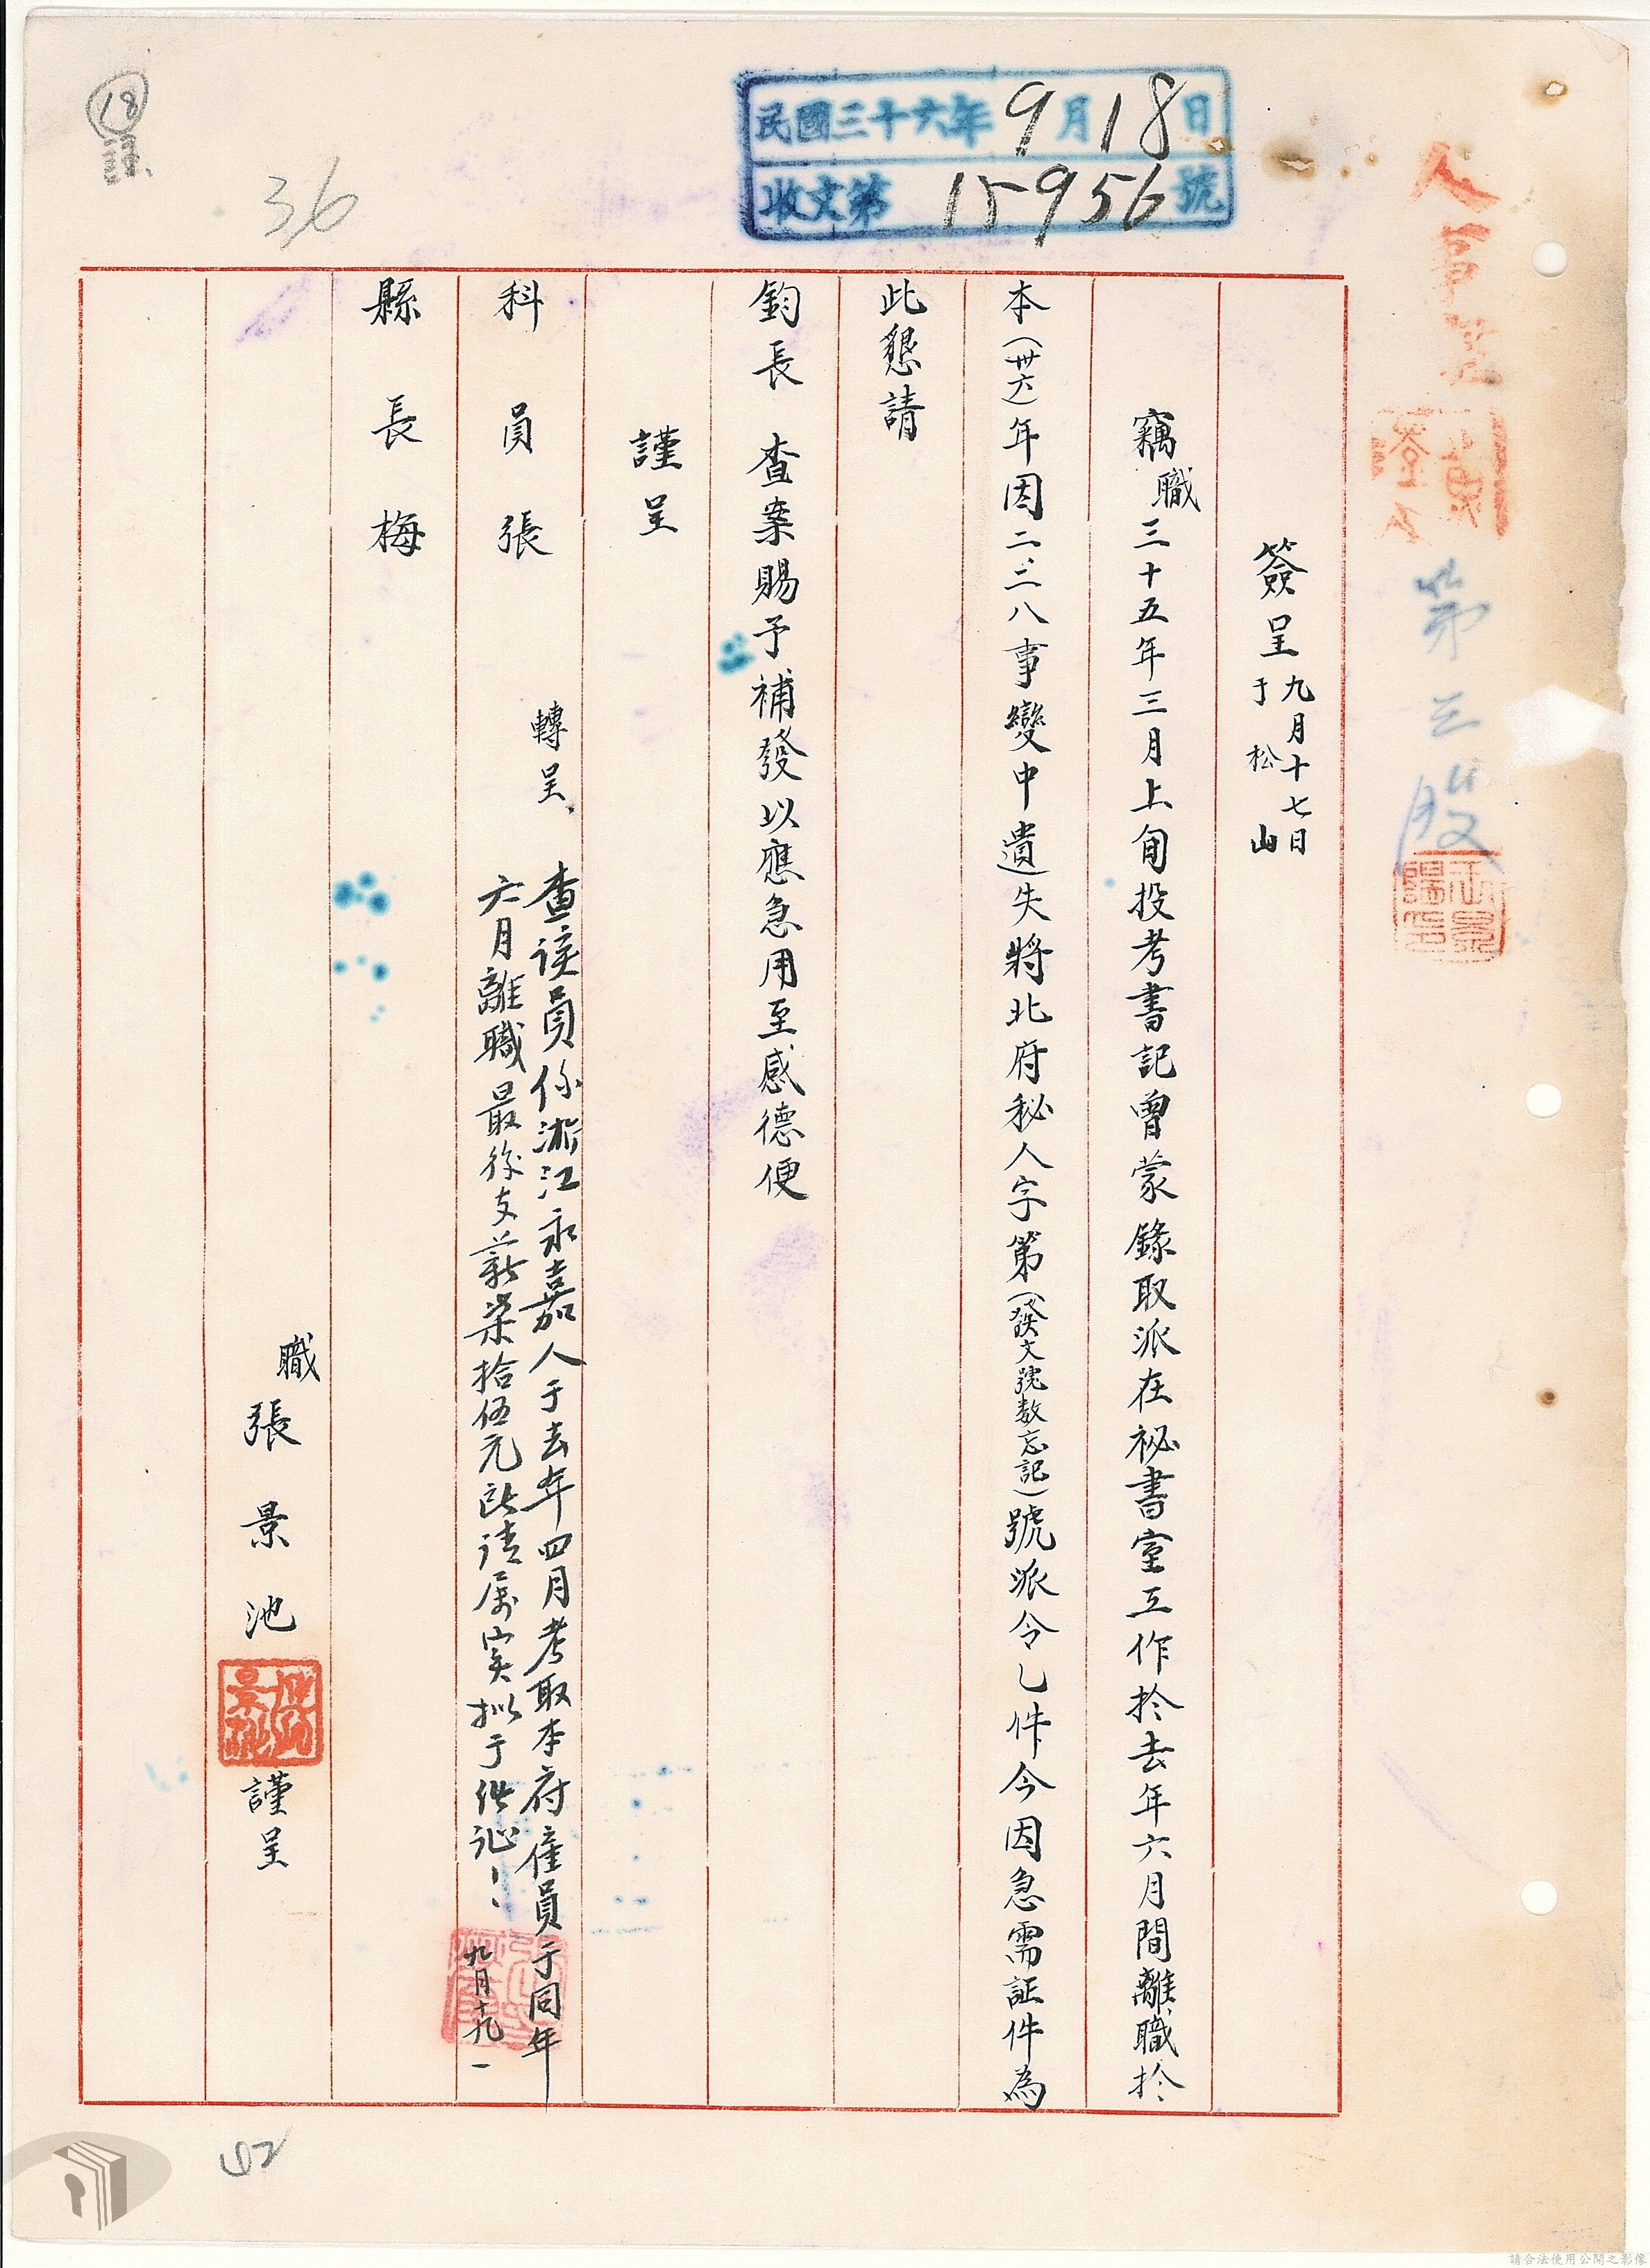 民國三十六年9月18日
收文第15956號
18
36
人事
第三股
簽呈 九月十七日
于松山
竊職三十五年三月上旬投考書記曾蒙錄取派在祕書室工作於去年六月間離職於
本（卅六）年因二、二八事變中遺失將北府秘人字第（發文號數忘記）號派令乙件今因急需証件為
此懇請
鈞長 查案賜予補發以應急用至感德便
謹呈
科員張 轉呈
縣長梅
查該員係浙江永嘉人于去年四月考取本府僱員于同年
六月離職最後支薪柒拾伍元所請屬实擬于
九月十九
職 張景池 謹呈
42
請合法使用公開之影像